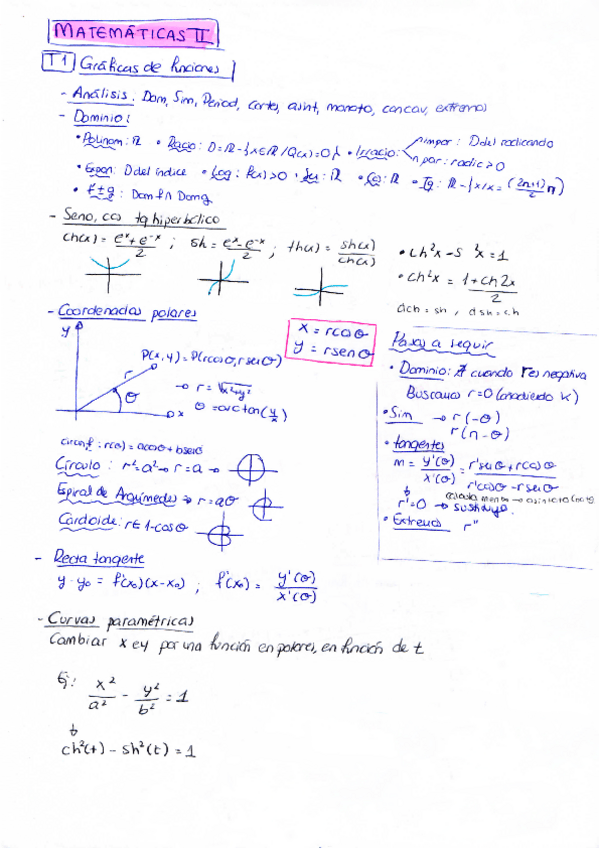 MATEMÁTICAS II
T1 Gráficas de funciones
- Análisis: Dom, Sim, Period, cortes, asint, monoto, concav, extremos
- Dominio:
• Polinom: ℝ • Racio: D=ℝ-{x∈ℝ/Q(x)=0} • Irracio: impar: D del radicando
par: radic>0
• Expon: D del índice • Log: f(x)>0 • Sen: ℝ • Cos: ℝ • Tg: ℝ-{x/x=(2n+1)/2 π}
• f±g: Dom f ∩ Dom g
- Seno, cos tg hiperbólico
ch(x) = (e^x+e^-x)/2 ; sh = (e^x-e^-x)/2 ; th(x) = sh(x)/ch(x)
• ch²x-s ²x=1
• ch²x = (1+ch2x)/2
dch = sh, dsh=ch
- Coordenadas polares
x = rcosθ
y = rsenθ
y
P(x,y)=P(rcosθ,rsenθ)
r
θ
x
→ r = √x²+y²
θ=arctan(y/x)
circunf: r(θ)=acosθ+bsenθ
Círculo: r²=a²→r=a→
Espiral de Arquímedes → r=aθ
Cardoide: r=1-cosθ →
Pasos a seguir
• Dominio: ∄ cuando r es negativa
Buscamos r=0 (añadiendo k)
• Sim → r(-θ)
r(π-θ)
• tangentes
m = y'(θ)/x'(θ) = (r'senθ+rcosθ)/(r'cosθ-rsenθ)
r'=0 → sustituyo
• Extremos r''
- Recta tangente
y-y₀ = f'(x₀)(x-x₀) ; f'(x₀) = y'(θ)/x'(θ)
- Curvas paramétricas
Cambiar x e y por una función en polares, en función de t
Ej: x²/a² - y²/b² = 1
ch²(t) - sh²(t) = 1